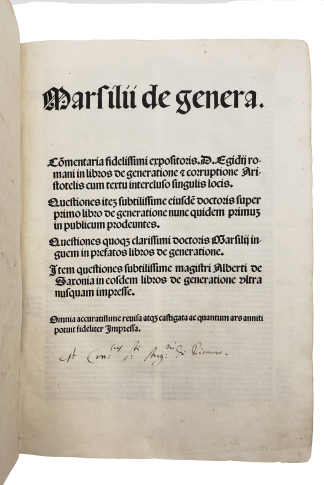 Marsilii de genera.
Cōmentaria fidelissimi expositoris. D. Egidij ro-
mani in libros de generatione ⁊ corruptione Ari-
stotelis cum textu intercluso singulis locis.
Questiones iteꝫ subtilissime eiusdē doctoris super
primo libro de generatione nunc quidem primuꝫ
in publicum prodeuntes.
Questiones quoqꝫ clarissimi doctoris Marsilij in-
guem in prefatos libros de generatione.
Item questiones subtilissime magistri Alberti de
Saxonia in eosdem libros de generatione vltra
nusquam impresse.
Omnia accuratissime reuisa atqꝫ castigata ac quantum ars anniti
potuit fideliter Impressa.